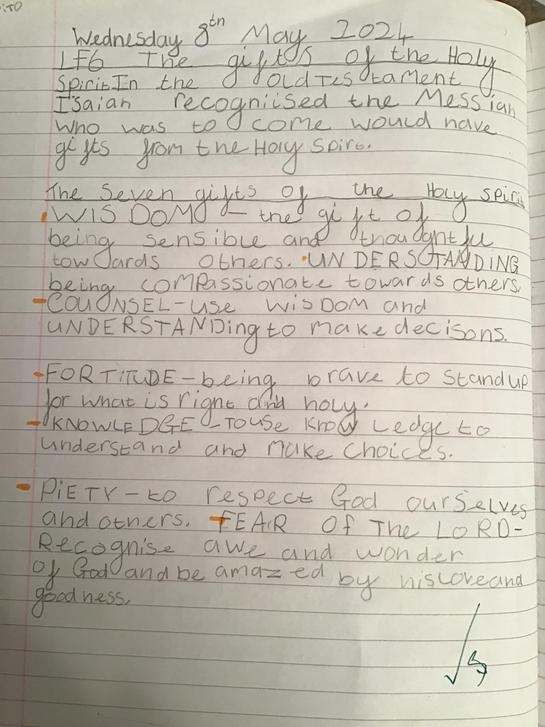 Wednesday 8th May 2024
LF6 The gifts of the Holy
Spirit In the old Testament
Isaiah recogniised the Messiah
who was to come would have
gifts from the Holy Spirt.
The Seven gifts of the Holy Spirit
WISDOM - the gift of
being sensible and thoughtful
towards others. UNDERSTANDING
being compassionate towards others
-COUNSEL-use WISDOM and
UNDERSTANDING to make decisons.
-FORTITUDE-being brave to stand up
for what is right and holy.
-KNOWLEDGE - To use knowledge to
understand and make choices.
- PIETY-to respect God ourselves
and others. -FEAR Of The LORD-
Recognise awe and wonder
of God and be amazed by his love and
goodness.